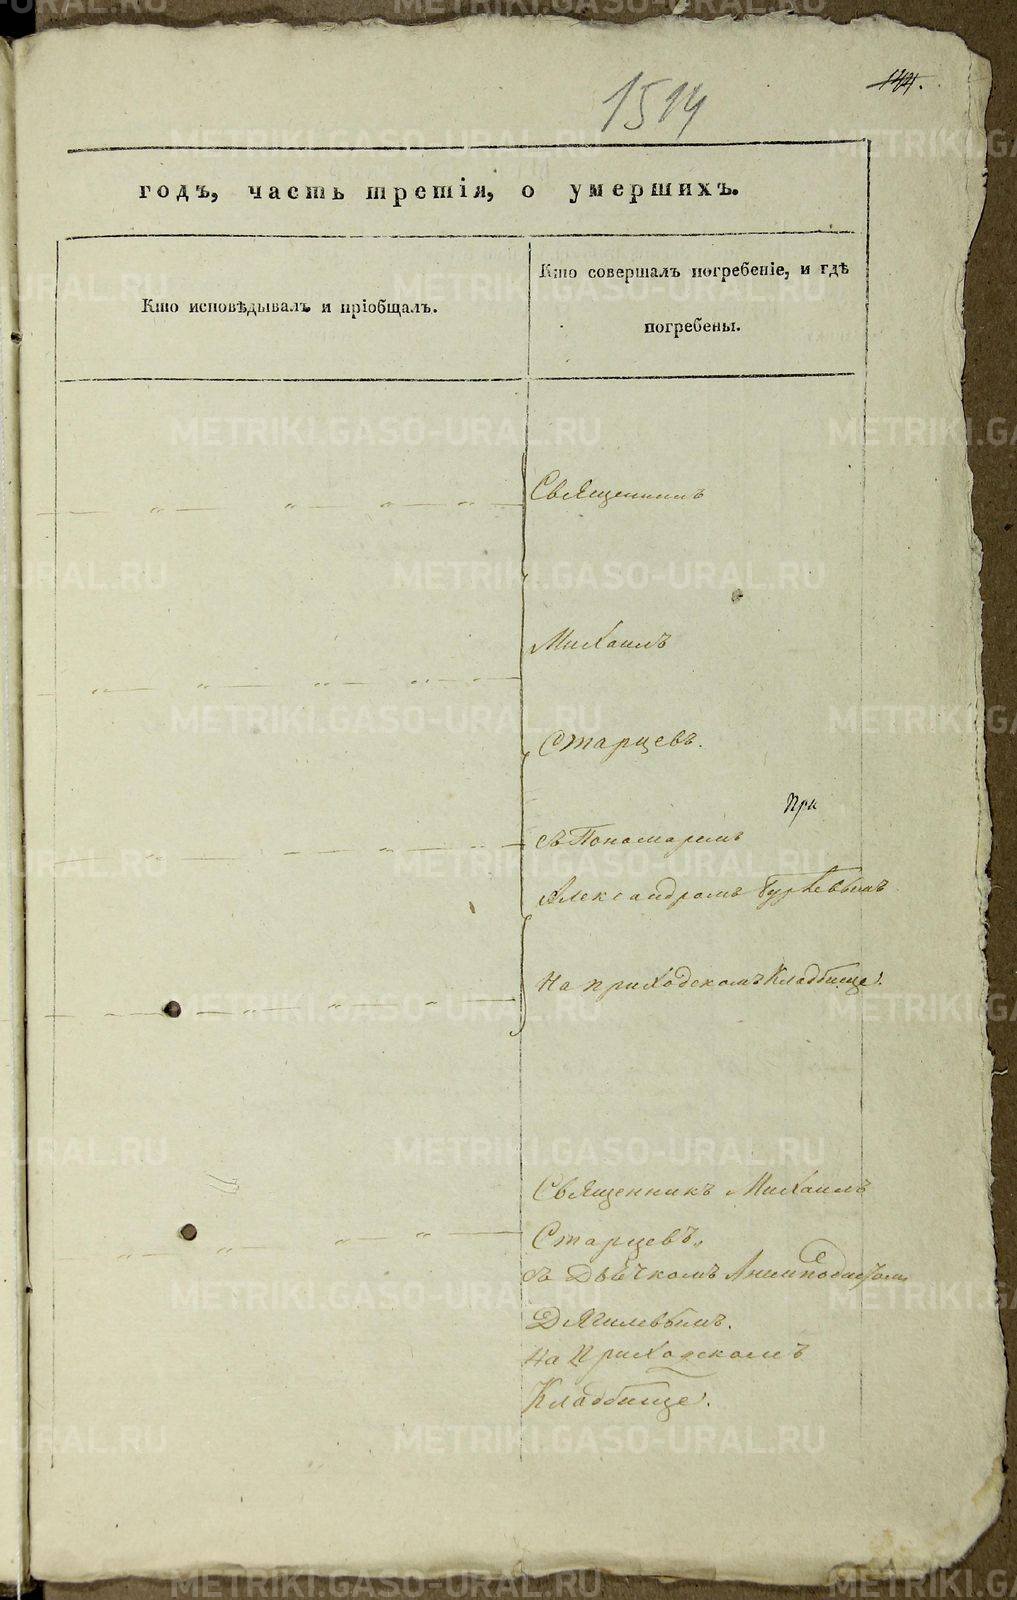 1514
годъ, часть третія, о умершихъ.
Кто исповѣдывалъ и пріобщалъ.
Кто совершалъ погребеніе, и гдѣ
погребены.
Священникъ
Михаилъ
Старцевъ.
При
съ Пономаремъ
Александромъ Гурѣевымъ
На приходскомъ Кладбище.
Священникъ Михаилъ
Старцевъ.
съ Дьячкомъ
Дягилевымъ.
На Приходскомъ
Кладбище.
METRIKI.GASO-URAL.RU